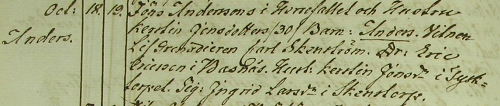 Oct: 18. 19. Jöns Andersons i Hirrefallet och Hustru
Kerstin Jensdotters /30/ Barn: Anders. Vittnen
Anders. Lif Grenadieren Carl Skenström. Dr: Eric
Ericsson i Basnäs. Hust: Kerstin Jönsdr i
torpet. Pig: Ingrid Larsdr i Stenstorp.